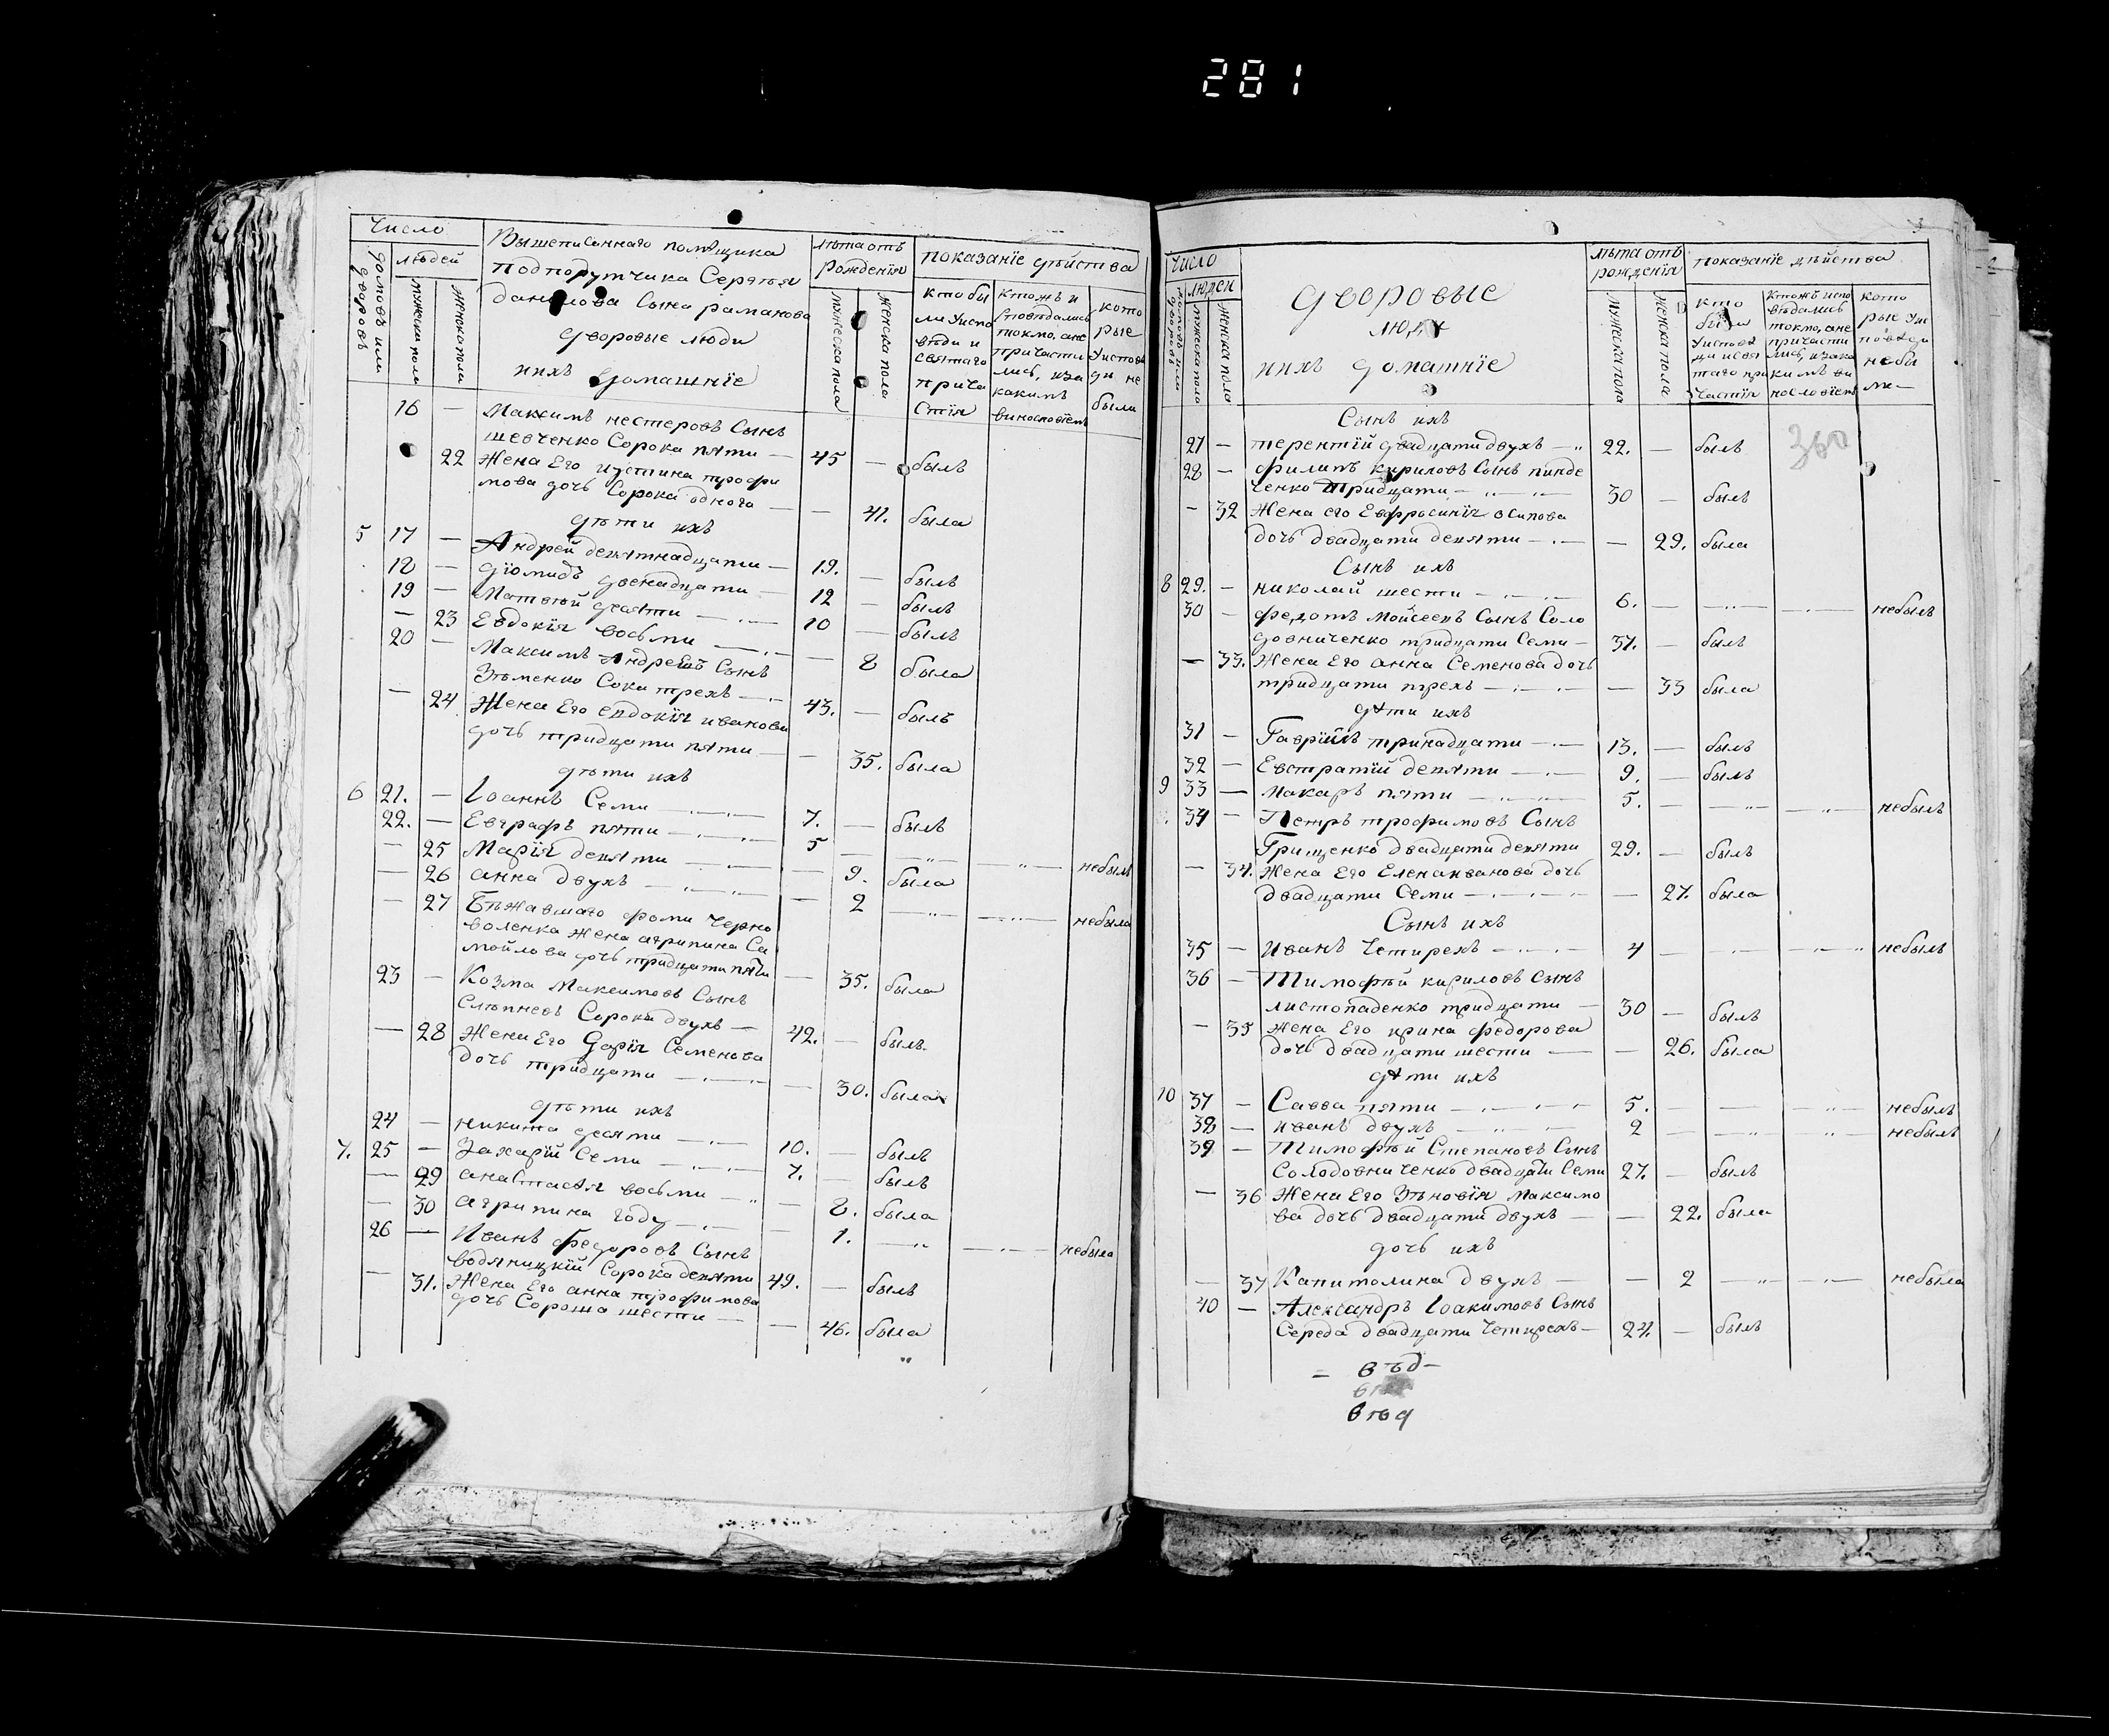 281
Число
Вышеписаннаго помѣщика
лѣта отъ
показанїе дѣйства
людей
подпорутчика Сергѣя
рожденїя
домовъ или
дворовъ
мужеска пола
женска пола
данилова Сына романова
дворовые люди
ихъ домашнїе
мужеска пола
женска пола
кто бы
ли Уиспо
вѣди и
святаго
прича
стїя
ктожъ и
споведались
токмо, ане
причасти
лись, иза
какимъ
винословїемъ
кото
рые
Уиспов
ди не
были
16 — Максимъ нестеровъ Сынъ
шевченко Сорока пяти — 45 — былъ
22 Жена Его иустина трофи
мова дочь Сорока одного — — 41. была
дѣти ихъ
5 17 — Андрей девятнадцати — 19. — былъ
18 — дїомидъ двенадцати — 12 — былъ
19 — Матвѣй десяти — 10 — былъ
— 23 Евдокїя восьми — — 8 была
20 — Максимъ Андреевъ Сынъ
Зѣменко Сока трехъ — 43. — былъ
— 24 Жена Его евдокїя иванова
дочь тридцати пяти — — 35. была
дѣти ихъ
6 21. — Iоаннъ Семи — 7. — былъ
22. — Евграфъ пяти — 5 — — — небылъ
— 25 Марїя девяти — — 9. была
— 26 анна двухъ — — 2 — — небыла
— 27 Бѣжавшаго фомы Черно
воленка жена агрипина Са
мойлова дочь тридцати пяти — 35. была
23 — Козма Максимовъ Сынъ
Слѣпневъ Сорока двухъ — 42. — былъ
— 28 Жена Его Дарїя Семенова
дочь тридцати — — 30. была
дѣти ихъ
24 — никита десяти — 10. — былъ
7. 25 — Захарїй Семи — 7. — былъ
— 29 анастасїя восьми — — 8. была
— 30 агрипина году — — 1. — — небыла
26 — Иванъ федоровъ Сынъ
водяницкїй Сорока девяти 49. — былъ
— 31. Жена Его анна трофимова
дочь Сорока шести — — 46. была
Число
дворовые
лѣта отъ
рожденїя
показанїе дѣйства
людеи
люди
ихъ домашнїе
домовъ или
дворовъ
мужеска пола
женска пола
мужеска пола
женска пола
кто
были
Уиспове
ди исвя
таго при
частїя
Ктожъ испо
вѣдались
токмо, ане
причасти
лись, изака
кимъ ви
нословїемъ
кото
рые Уис
поведи
небы
ли —
360
Сынъ ихъ
27 — терентїй двадцати двухъ — 22. — былъ
28 — филипъ кириловъ Сынъ пинде
ченко тридцати — 30 — былъ
— 32 Жена его Евфросинїя осипова
дочь двадцати девяти — — 29. была
Сынъ ихъ
8 29. — николай шести — 6. — — — небылъ
30 — федотъ мойсеевъ Сынъ Соло
довниченко тридцати Семи — 37. — былъ
— 33. Жена Его анна Семенова дочь
тридцати трехъ — — 33 была
дѣти ихъ
31 — Гаврїилъ тринадцати — 13. — былъ
32 — Евстратїй девяти — 9. — былъ
9 33 — Макаръ пяти — 5. — — — небылъ
34 — Петръ трофимовъ Сынъ
Грищенко двадцати девяти 29. — былъ
— 34. Жена Его Елена иванова дочь
двадцати Семи — — 27. была
Сынъ ихъ
35 — иванъ Четирехъ — 4 — — — небылъ
36 — Тимофѣй кириловъ Сынъ
листопаденко тридцати — 30 — былъ
— 35 Жена Его ирина федорова
дочь двадцати шести — — 26. была
дѣти ихъ
10 37 — Савва пяти — 5. — — небылъ
38 — иванъ двухъ — 2 — — небылъ
39 — Тимофѣй Степановъ Сынъ
Солодовниченко двадцати Семи 27. — былъ
— 36 Жена Его Зѣновїя Максимо
ва дочь двадцати двухъ — — 22. была
дочь ихъ
— 37 Капитолина двухъ — — 2 — — небыла
40 — Александръ Iоакимовъ Сынъ
Середа двадцати Четирехъ — 24. — былъ